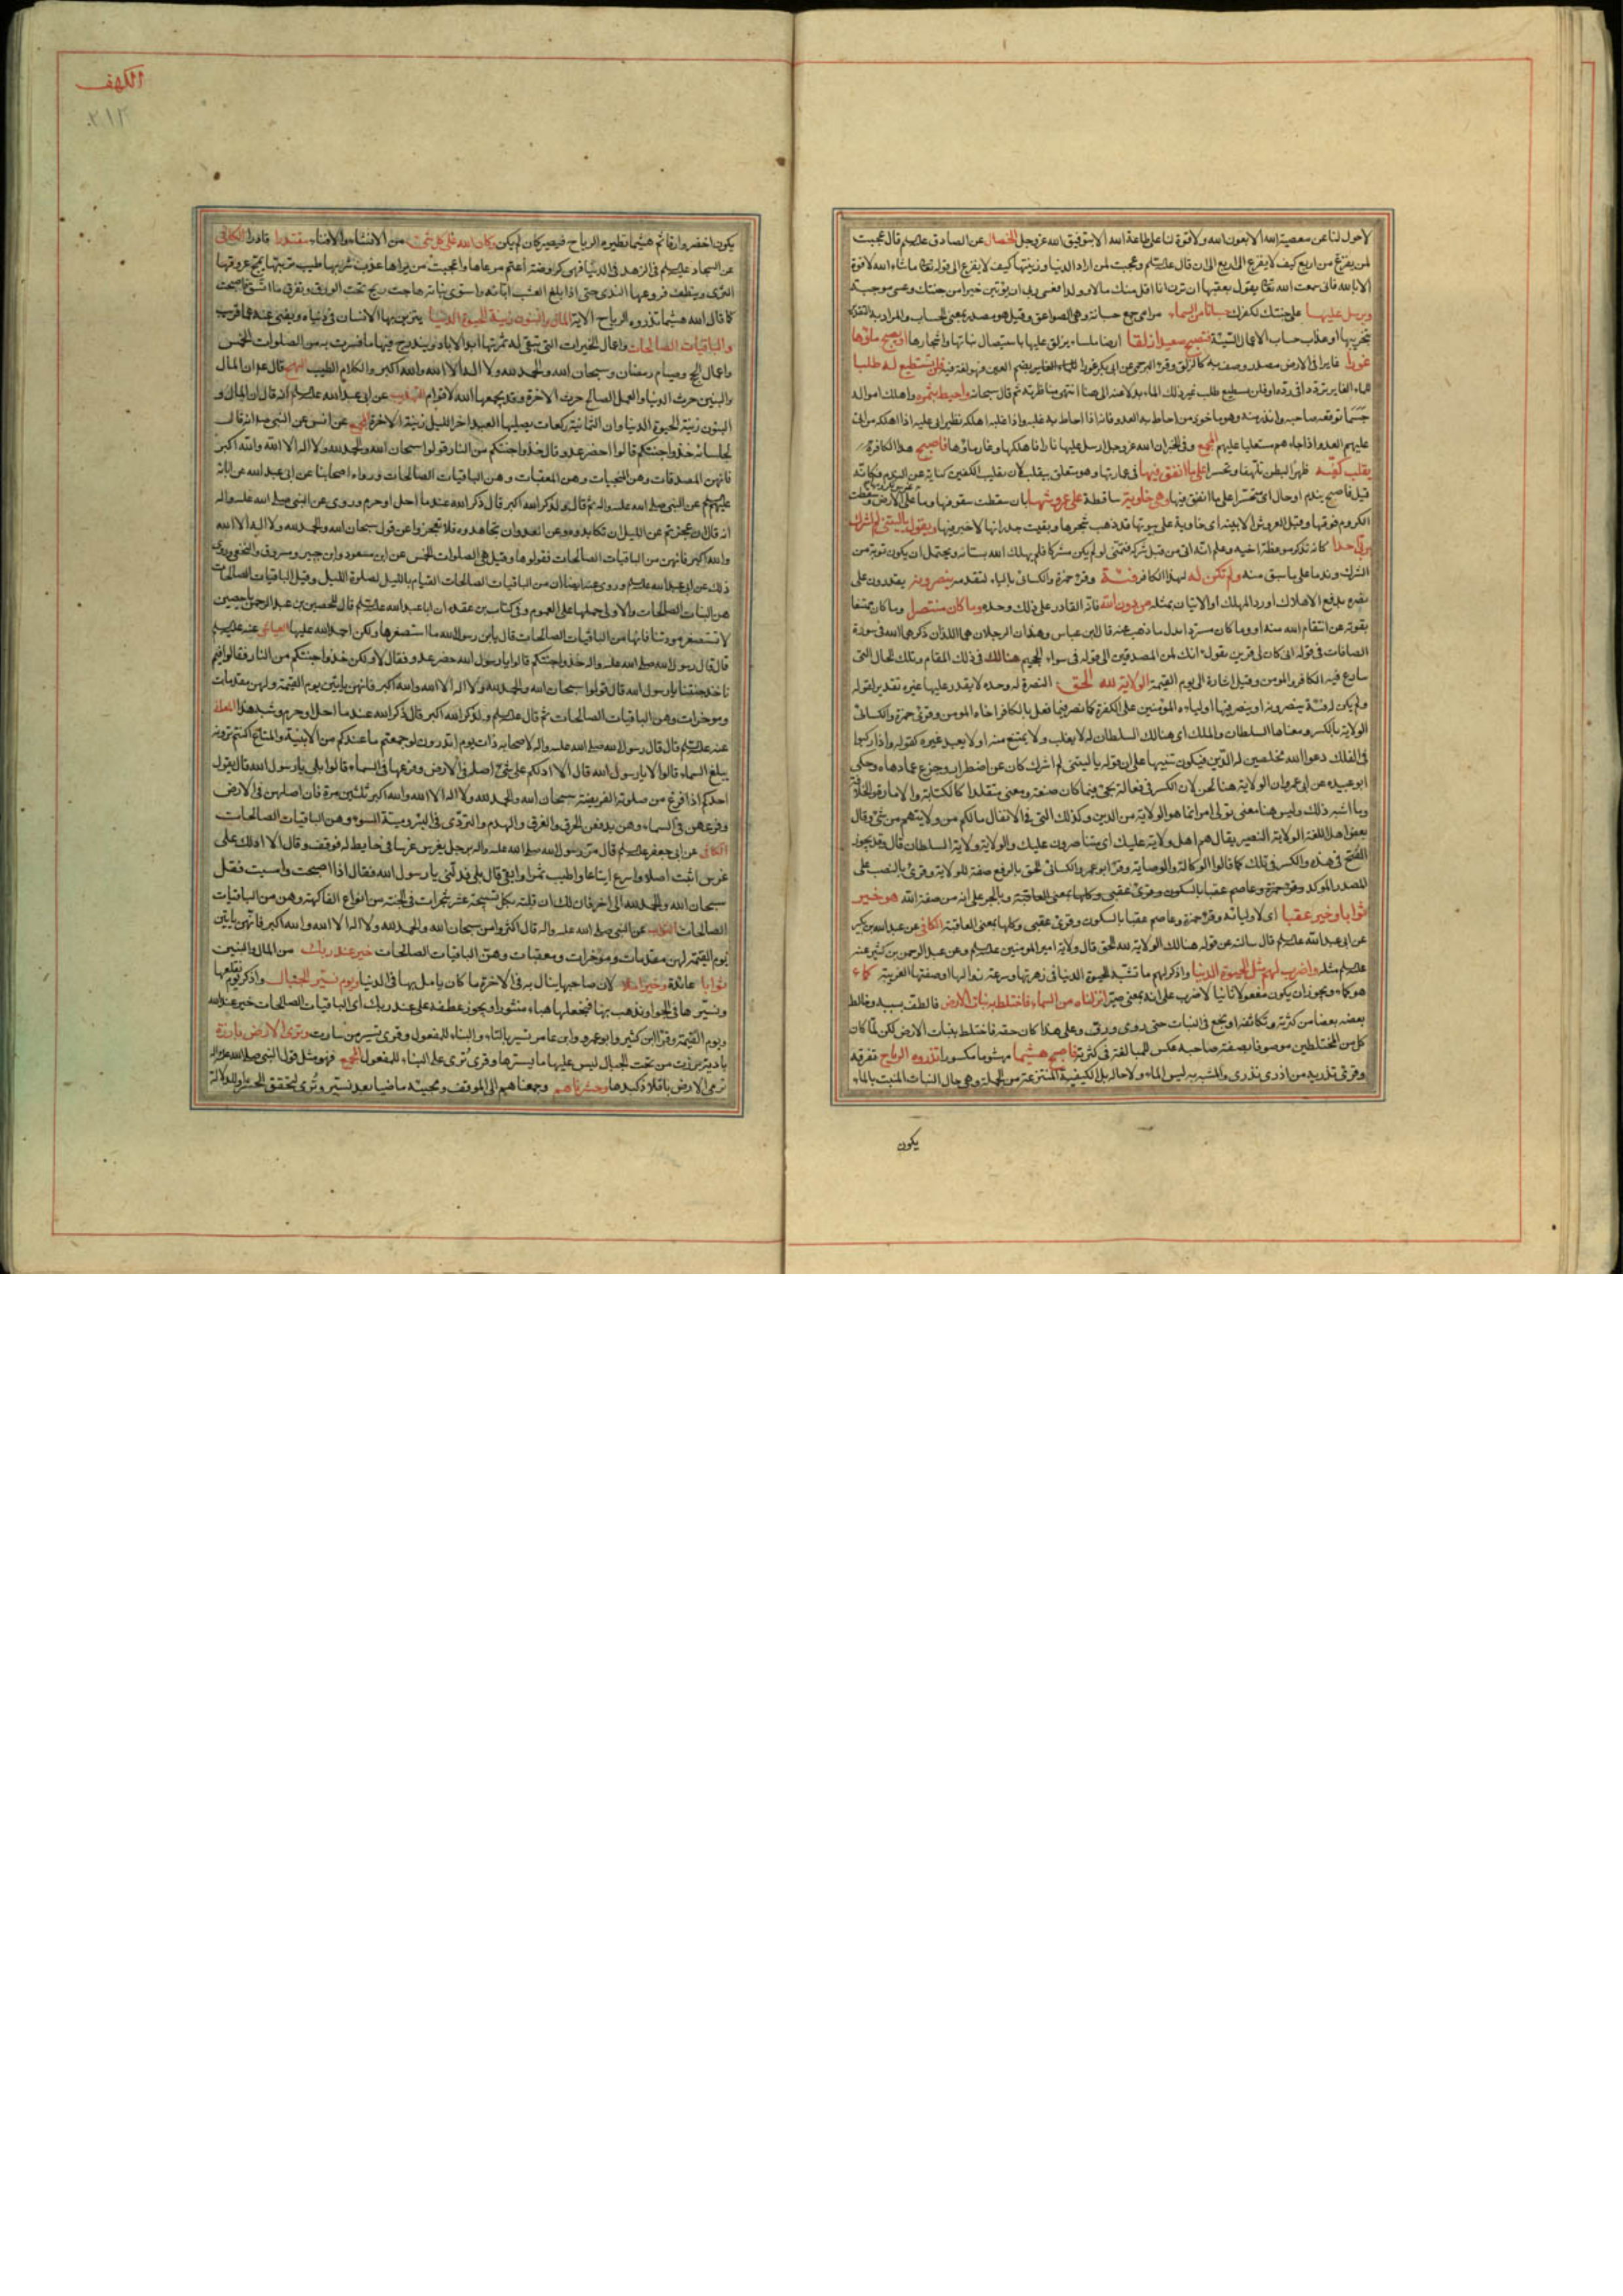 لاحول لنا عن معصية الله الا بعون الله ولا قوة لنا على طاعة الله الا بتوفيق الله عز وجل الخصال عن الصادق قال عجبت
لمن يفزع من اربع كيف لا يفزع الى اربع الى ان قال وعجبت لمن اراد الدنيا وزينتها كيف لا يفزع الى قوله ما شاء الله لا قوة
الا بالله فانى سمعت الله يقول بعقبها ان ترن انا اقل منك مالا وولدا فعسى ربى ان يؤتين خيرا من جنتك وعسى موجبة
ويرسل عليها على جنتك لكفرك حسبانا من السماء مرامى جمع حسبانة وهى الصواعق وقيل هو مصدر بمعنى الحساب والمراد به التقدير
بتخريبها او عذاب حساب الاعمال السيئة فتصبح صعيدا زلقا ارضا ملساء يزلق عليها باستيصال نباتها واشجارها او يصبح ماؤها
غورا غايرا فى الارض مصدر وصف به كالزلق فلن تستطيع له طلبا
واحيط بثمره واهلك امواله
حسبما توقعه صاحبه وانذره منه وهو ماخوذ من احاط به العدو فانه اذا احاط به غلبه واذا غلبه اهلكه نظير اتى عليه اذا اهلكه من اتى
عليهم العدو اذا جاءهم مستعليا عليهم المجمع وفى الخبر ان الله عز وجل ارسل عليها نارا فاهلكها وغار ماؤها فاصبح هذا الكافر
يقلب كفيه ظهرا لبطن تلهفا وتحسرا على ما انفق فيها فى عمارتها وهو متعلق بيقلب لان تقليب الكفين كناية عن الندم فكانه
قيل فاصبح يندم او حال اى متحسرا على ما انفق فيها وهى خاوية ساقطة على عروشها بان سقطت
الكروم فوقها وقيل العروش الابنية اى خاوية على بيوتها قد ذهب شجرها وبقيت جدرانها لا خير فيها ويقول يا ليتنى لم اشرك
بربى احدا كانه تذكر موعظة اخيه وعلم انه اتى من قبل شركه فتمنى لو لم يكن مشركا فلم يهلك الله بستانه ويحتمل ان يكون توبة من
الشرك وندما على ما سبق منه ولم تكن له لهذا الكافر فئة وقرء حمزة والكسائى بالياء لتقدمه ينصرونه يقدرون على
نصره بدفع الاهلاك او رد المهلك او الاتيان بمثله من دون الله فانه القادر على ذلك وحده وما كان منتصرا وما كان ممتنعا
بقوته عن انتقام الله منه قال ابن عباس وهذان الرجلان هما اللذان ذكرهما الله فى سورة
الصافات فى قوله انى كان لى قرين يقول انك لمن المصدقين الى قوله فى سواء الجحيم هنالك فى ذلك المقام وتلك الحال التى
وقيل اشارة الى يوم القيمة الولاية لله الحق النصرة له وحده لا يقدر عليها غيره تقدير لقوله
ولم يكن له فئة ينصرونه او ينصر فيها اولياءه المؤمنين على الكفرة كما نصر فيما فعل بالكافر اخاه المومن وقرئ حمزة والكسائى
الولاية بالكسر ومعناها السلطان والملك اى هنالك السلطان له لا يغلب ولا يمتنع منه او لا يعبد غيره كقوله واذا ركبوا
فى الفلك دعوا الله مخلصين له الدين فيكون تنبيها على ان قوله يا ليتنى لم اشرك كان عن اضطرار وجزع عما دهاه وحكى
ابو عبيدة عن ابى عمرو ان الولاية هنا لحن لان الكسر فى فعالة يجئ فيما كان صنعة ومعنى متقلدا كالكتابة والامارة والخلافة
وما اشبه ذلك وليس هنا معنى تولى امر انما هو الولاية من الدين وكذلك التى فى الانفال ما لكم من ولايتهم من شئ وقال
بعض اهل اللغة الولاية النصر يقال هم اهل ولاية عليك اى متناصرون عليك والولاية ولاية السلطان قال وقد يجوز
الفتح فى هذه والكسر فى تلك كما قالوا الوكالة والوصاية وقرء ابو عمرو والكسائى الحق بالرفع صفة للولاية وقرئ بالنصب على
المصدر الموكد وقرء حمزة وعاصم عقبا بالسكون وقرئ عقبى وكلها بمعنى العاقبة وبالجر على انه من صفة الله هو خير
ثوابا وخير عقبا اى لاوليائه وقرء حمزة وعاصم عقبا بالسكون وقرئ عقبى وكلها بمعنى العاقبة الكافى
عن ابى عبد الله قال سالته عن قوله هنالك الولاية لله الحق قال ولاية امير المومنين وعن عبد الرحمن بن كثير عنه
مثله واضرب لهم مثل الحيوة الدنيا واذكر لهم ما تشبه الحيوة الدنيا فى زهرتها وسرعة زوالها او صفتها الغريبة كماء
هو كماء ويجوز ان يكون مفعولا ثانيا لاضرب على انه بمعنى صير انزلناه من السماء فاختلط به نبات الارض فالتف بسببه وخالط
بعضه بعضا من كثرته وتكاثفه او نجع فى النبات حتى روى ورف وعلى هذا كان حقه فاختلط بنبات الارض لكن لما كان
كل من المختلطين موصوفا بصفة صاحبه عكس للمبالغة فى كثرته فاصبح هشيما مهشوما مكسورا تذروه الرياح تفرقه
وقرئ تذريه من اذرى تذرى والمشبه به ليس الماء ولا حاله بل الكيفية المنتزعة من الجملة وهى حال النبات المنبت بالماء
يكون
الكهف
٢١٢
يكون اخضر وارفا ثم هشيما تطيره الرياح فيصير كان لم يكن وكان الله على كل شئ من الانشاء والافناء مقتدرا قادرا الكافى
عن السجاد فى الزهد فى الدنيا
كما قال الله هشيما تذروه الرياح الاية المال والبنون زينة الحيوة الدنيا يتزين بها الانسان فى دنياه ويفنى عنه عما قريب
والباقيات الصالحات واعمال الخيرات التى تبقى له ثمرتها ابد الاباد ويندرج فيها ما فسرت به من الصلوات الخمس
واعمال الحج وصيام رمضان وسبحان الله والحمد لله ولا اله الا الله والله اكبر والكلام الطيب قال هو ان المال
والبنين حرث الدنيا والعمل الصالح حرث الاخرة وقد يجمعهما الله لاقوام التهذيب عن ابى عبد الله انه قال ان المال و
البنون زينة الحيوة الدنيا وان الثمانية ركعات يصليها العبد اخر الليل زينة الاخرة المجمع عن انس عن النبى انه قال
لجلسائه خذوا جنتكم قالوا احضر عدو قال خذوا جنتكم من النار قولوا سبحان الله والحمد لله ولا اله الا الله والله اكبر
فانهن المقدمات وهن المنجيات وهن المعقبات وهن الباقيات الصالحات ورواه اصحابنا عن ابى عبد الله عن ابائه
عن النبى صلى الله عليه واله ثم قال ولذكر الله اكبر قال ذكر الله عند ما احل او حرم وروى عن النبى صلى الله عليه واله
انه قال ان عجزتم عن الليل ان تكابدوه وعن العدو ان تجاهدوه فلا تعجزوا عن قول سبحان الله والحمد لله ولا اله الا الله
والله اكبر فانهن من الباقيات الصالحات فقولوها وقيل هى الصلوات الخمس عن ابن مسعود وابن جبير ومسروق والنخعى وروى
ذلك عن ابى عبد الله وروى عنه ايضا ان من الباقيات الصالحات القيام بالليل لصلوة الليل وقيل الباقيات الصالحات
هن البنات الصالحات والاولى حملها على العموم وفى كتاب بن عقدة ان ابا عبد الله قال للحصين بن عبد الرحمن يا حصين
لا تستصغر مودتنا فانها من الباقيات الصالحات قال يابن رسول الله ما استصغرها ولكن احمد الله عليها العياشى عنه
قال قال رسول الله صلى الله عليه واله خذوا جنتكم قالوا يا رسول الله حضر عدو فقال لا ولكن خذوا جنتكم من النار فقالوا فبم
ناخذ جنتنا يا رسول الله قال قولوا سبحان الله والحمد لله ولا اله الا الله والله اكبر فانهن ياتين يوم القيمة ولهن مقدمات
وموخرات وهن الباقيات الصالحات ثم قال ولذكر الله اكبر قال ذكر الله عند ما احل او حرم وشبه هذا
عنه قال قال رسول الله صلى الله عليه واله لاصحابه ذات يوم اترون لو جمعتم ما عندكم من الابنية والمتاع اكنتم ترونه
يبلغ السماء قالوا لا يا رسول الله قال الا ادلكم على شئ اصله فى الارض وفرعها فى السماء قالوا بلى يا رسول الله قال يقول
احدكم اذا فرغ من صلوته الفريضة سبحان الله والحمد لله ولا اله الا الله والله اكبر ثلثين مرة فان اصلهن فى الارض
وفرعهن فى السماء وهن يدفعن الحرق والغرق والهدم والتردى فى البئر وميتة السوء وهن الباقيات الصالحات
الكافى عن ابى جعفر قال مر رسول الله صلى الله عليه واله برجل يغرس غرسا فى حايط له فوقف وقال الا ادلك على
غرس اثبت اصلا واسرع ايناعا واطيب ثمرا وابقى قال بلى فدلنى يا رسول الله فقال اذا اصبحت وامسيت فقل
سبحان الله والحمد لله الى اخر فان لك ان قلته بكل تسبيحة عشر شجرات فى الجنة من انواع الفاكهة وهن من الباقيات
الصالحات عن النبى صلى الله عليه واله قال اكثروا من سبحان الله والحمد لله ولا اله الا الله والله اكبر فانهن ياتين
يوم القيمة لهن مقدمات ومؤخرات ومعقبات وهن الباقيات الصالحات خير عند ربك من المال والبنين
ثوابا عائدة وخير املا لان صاحبها ينال به فى الاخرة ما كان يامل بها فى الدنيا ويوم نسير الجبال واذكر يوم نقلعها
ونسيرها فى الجو او نذهب بها فنجعلها هباء منثورا ويجوز عطفه على عند ربك اى الباقيات الصالحات خير عند الله
ويوم القيمة وقرء ابن كثير وابو عمرو وابن عامر تسير بالتاء والبناء للمفعول وقرئ تسير من سارت وترى الارض بارزة
بادية برزت من تحت الجبال ليس عليها ما يسترها وقرئ ترى على البناء للمفعول المجمع فهو مثل قول النبى صلى الله عليه واله
ترمى الارض بافلاذ كبدها وحشرناهم وجمعناهم الى الموقف ومجيئه ماضيا بعد نسير وترى لتحقق الحشر او للدلالة